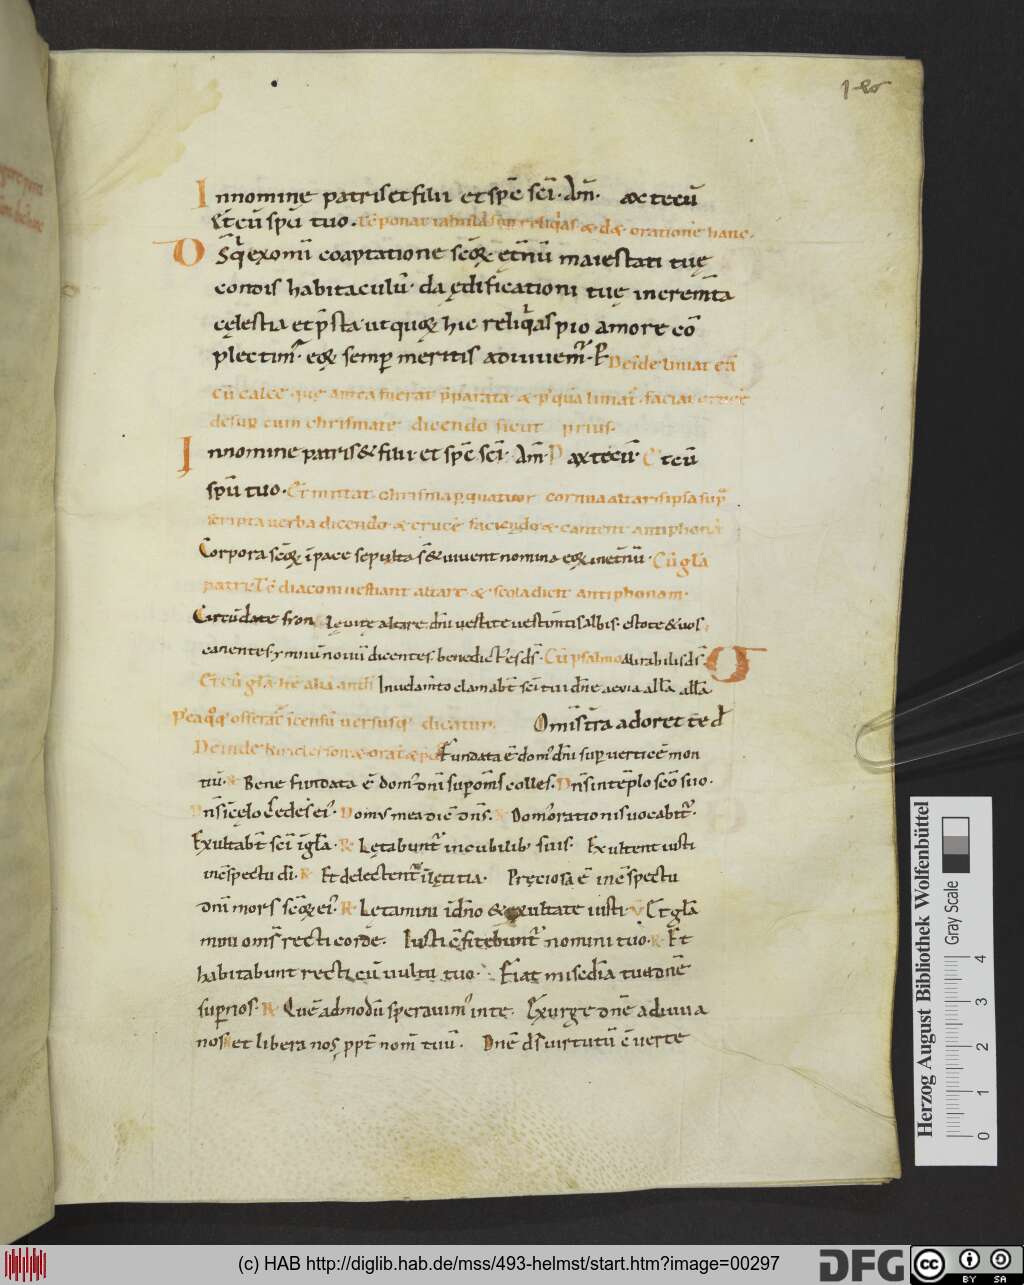 Innomine patrisetfilii etspc̄ sc̄i· Am̄· axtecū
&tcū spū tuo. Tc̄ponat tabulā sup reliq̄as & dæ orationē hanc.
DS q̄ exomū coaptatione sc̄oꝝ ęt̄nū maiestati tuę
condis habitaculū· da ędificationi tuę increm̄ta
cęlestia etp̄sta·utquoꝝ hic reliq̄aspio amore cō
plectim̄· eoꝝ semp meritis adiuuem̄·P Deīde liniat eā
cū calce· quę antea fuerat p̄parata & p̄quā liniat̄· faciat crucē
desup cum chrismate dicendo sicut prius·
Innomine patris& filii· et spc̄ sc̄i· Am̄ P axtecū· & tcū
spū tuo. Et mittat chrisma p quatuor cornua altarisipsa sup̄
scripta uerba dicendo & crucē faciendo & cantent antiphonā
Corpora sc̄oꝝ īpace sepulta s̄ &uiuent nomina eoꝝ inet̄nū· Cū gl̄a
patri· Tc̄ diaconi uestiant altare & scola dicit antiphonam·
Circūdate syon Leuitę altare dn̄i uestite uestim̄tisalbis· estote &uos
canentes ymnūnouū dicentes· benedict̄ es ds̄· Cū psalmo Mirabilisds̄·
Et cū gl̄a· It̄ alia anth Inuelam̄to clamabt̄ sc̄i tui dn̄e aeuia all̄a all̄a
Pteaq̄ offerat̄ īcensū uersusq̄ dicatur. Omīst̄ra adoret te d̄
Deinde Kirieleison & orat̄ & p̄c Fundata ē dom̄ dn̄i sup uerticē mon
tiū· R Bene fundata ē dom̄ dn̄i supom̄s colles. Dn̄s intēplo sc̄o suo.
Dn̄s īcęlo sedes ei· Domus mea dic̄ dn̄s. R Dom̄ orationis uocabit̄·
Exultabt̄ sc̄i īgl̄a· R Lętabunt̄ incubilib suis. Exultent iusti
inc̄spectu di· R Et delectent̄ īlętitia· Pręciosa ē inc̄spectu
dn̄i mors sc̄oꝝ ei· R Letamini īdn̄o &exultate iusti· V Et gl̄a
mini om̄s recti corde. Iusti c̄fitebunt̄ nomini tuo· R Et
habitabunt recti cū uultu tuo· Fiat mis̄cdia tuadn̄e
sup nos· R Quē admodū sperauim̄ inte· Exurge dn̄e adiuua
nos R et libera nos ppt̄ nom̄ tuū. Dn̄e ds̄ uirtutū c̄uerte
Herzog August Bibliothek Wolfenbüttel
Gray Scale
0 1 2 3 4
(c) HAB http://diglib.hab.de/mss/493-helmst/start.htm?image=00297
DFG
cc
BY SA